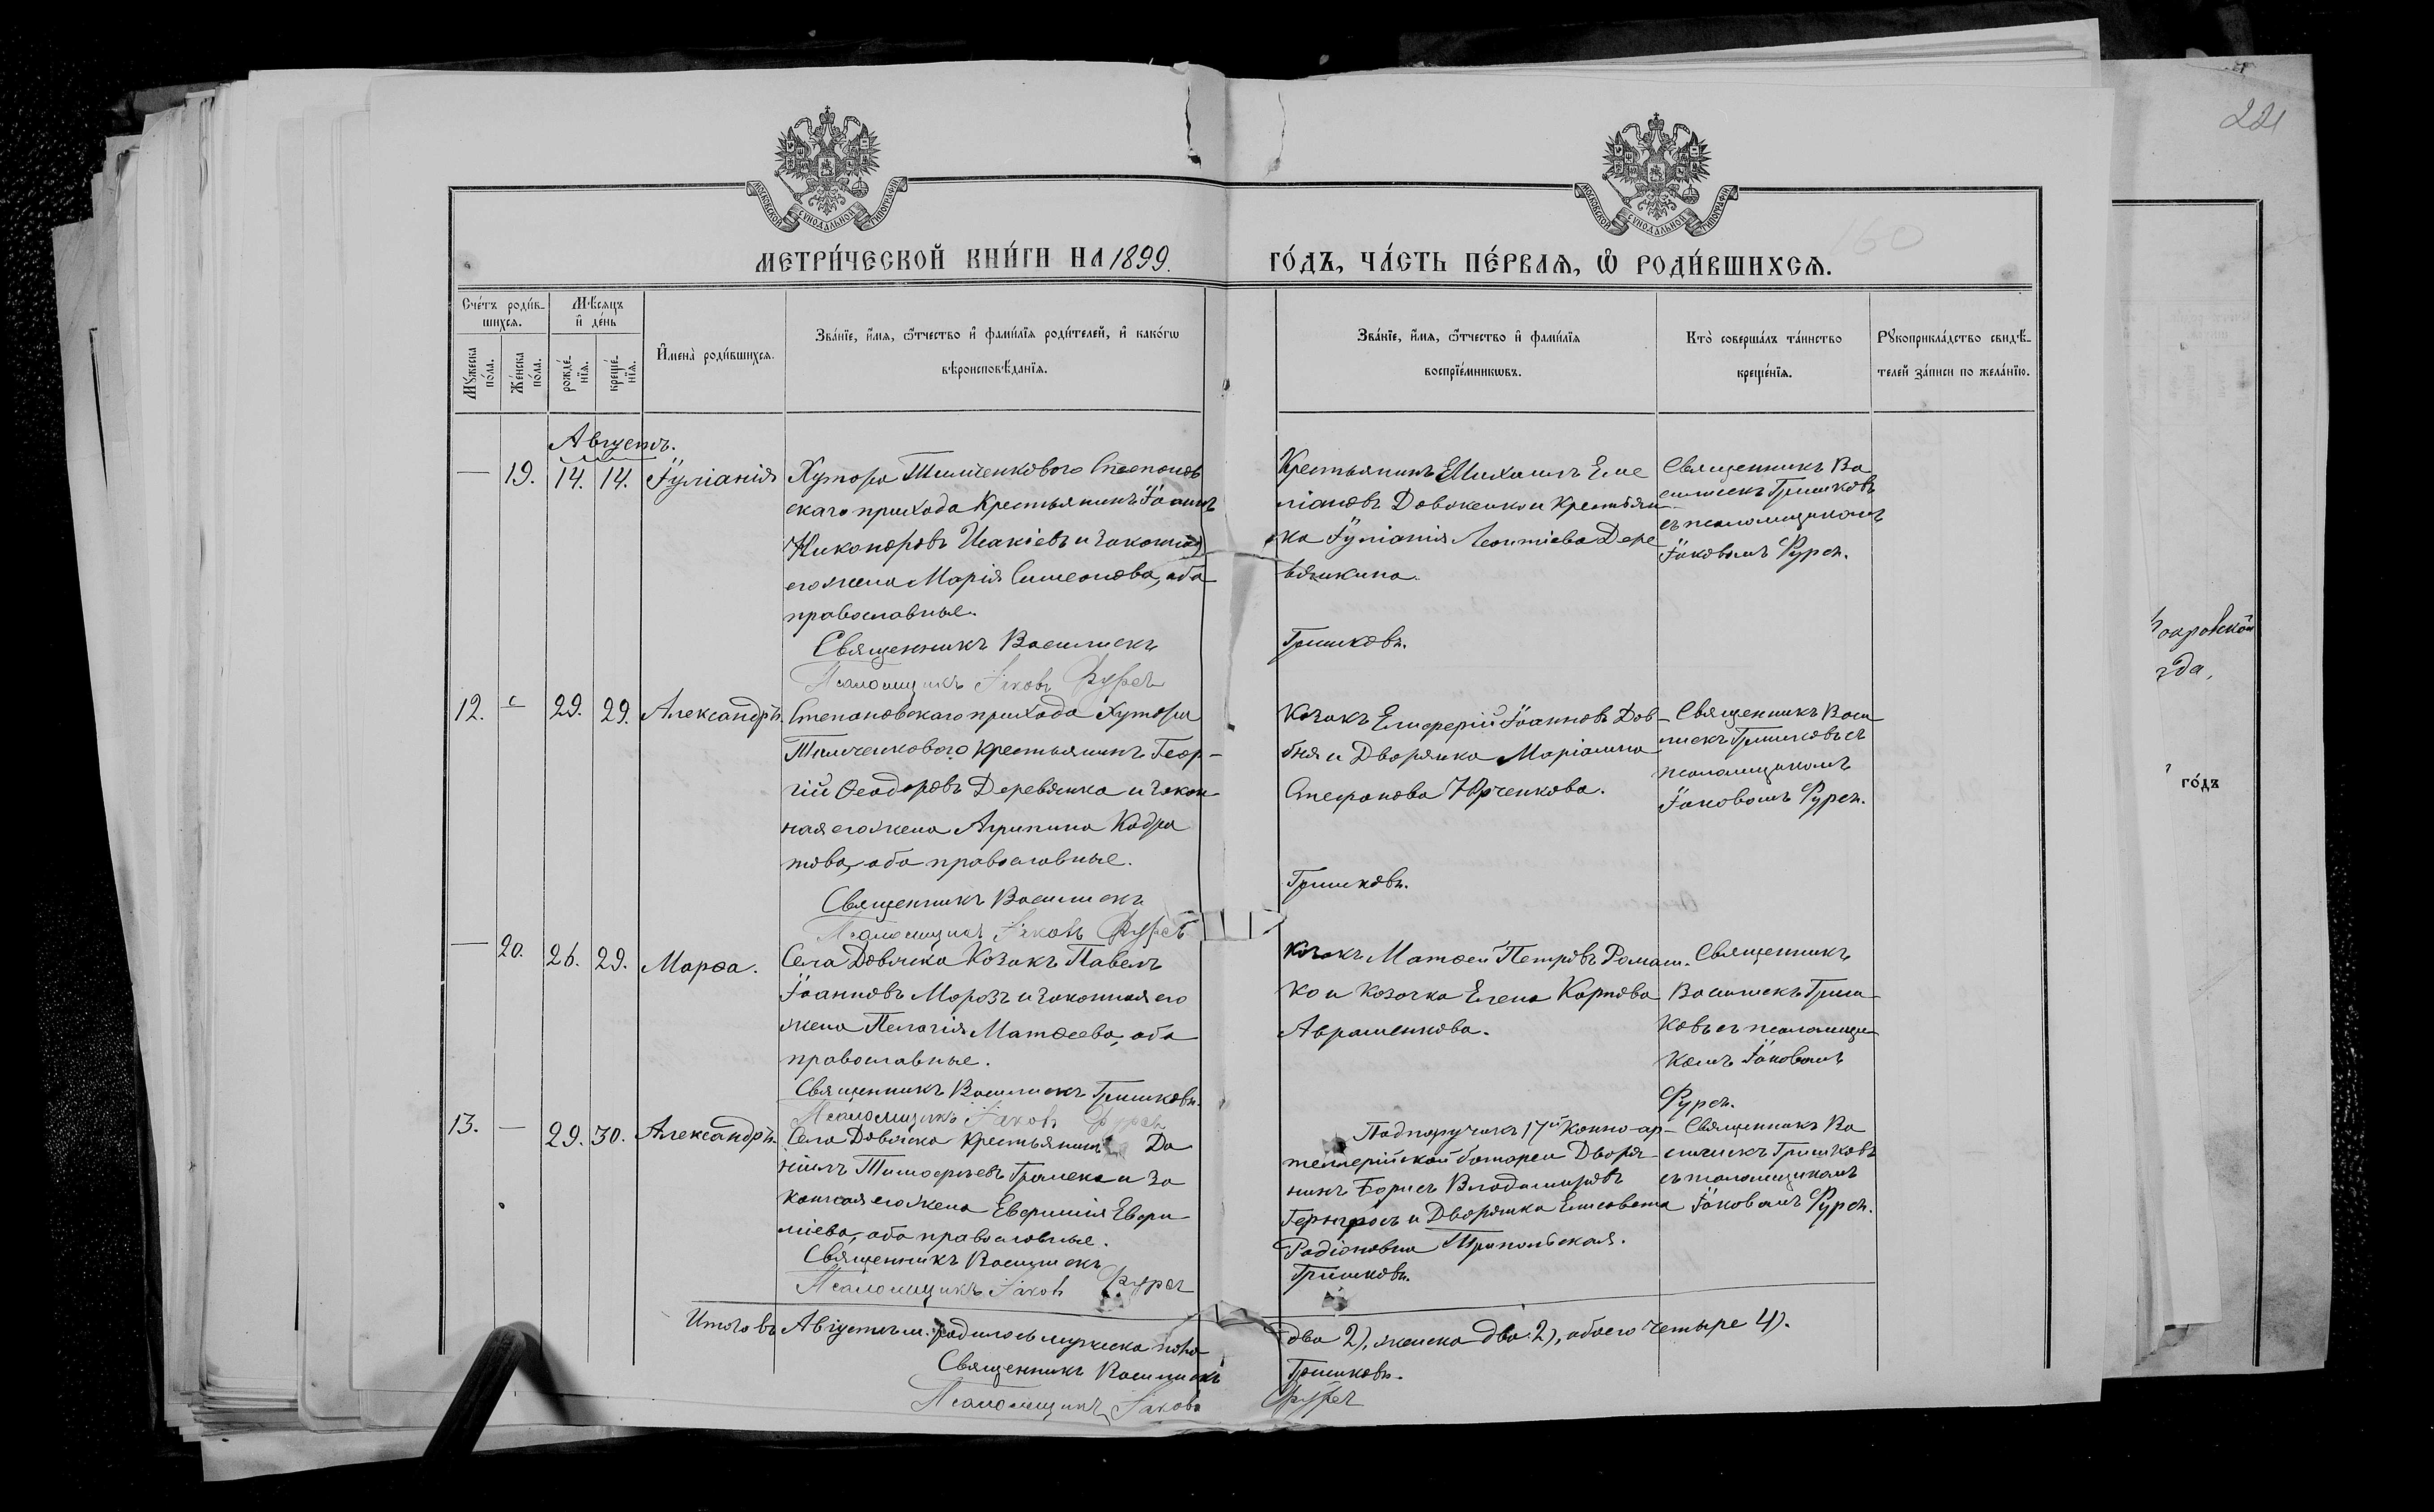 221
160
МОСКОВСКОЙ СѴНОДАЛЬНОЙ ТИПОГРАФІИ
МОСКОВСКОЙ СѴНОДАЛЬНОЙ ТИПОГРАФІИ
МЕТРИ́ЧЕСКОЙ КНИ́ГИ НА 1899.
ГО́ДЪ, ЧА́СТЬ ПЕ́РВАЯ, Ѿ РОДИ́ВШИХСЯ.
Сче́тъ роди́в-
шихся.
Мѣ́сяцъ
и҆ де́нь
Мꙋ́жеска
по́ла.
Же́нска
по́ла.
рожде́-
нїя.
креще́-
нїя.
И҆мена̀ роди́вшихся.
Зва́нїе, и҆́мя, ѻ҆́тчество и҆ фами́лїя роди́телей, и҆ како́гѡ
вѣроисповѣ́данїя.
Зва́нїе, и҆́мя, ѻ҆́тчество и҆ фами́лїя
воспрїе́мникѡвъ.
Кто̀ соверша́лъ та́инство
креще́нїя.
Рꙋкоприкла́дство свидѣ́-
телей за́писи по жела́нїю.
Августъ.
— 19. 14. 14. Іуліанія
Хутора Тимченкового Степанов
скаго прихода Крестьянинъ Іоаннъ
Никаноровъ Исакіевъ и законная
его жена Марія Симеонова, оба
православные.
Священникъ Василискъ
Псаломщикъ Іаковъ Фурса
Крестьянинъ Михаилъ Еме
ліановъ Довженко и Крестьян
ка Іуліанія Леонтіева Дере
вянкина.
Гришковъ.
Священникъ Ва
силискъ Гришковъ
съ псаломщикомъ
Іаковомъ Фурса.
12. — 29. 29. Александръ.
Степановскаго прихода Хутора
Тимченкового крестьянинъ Геор-
гій Ѳеодоровъ Деревянка и закон-
ная его жена Агрипина Кодра
това, оба православные.
Священникъ Василискъ
Псаломщикъ Іаковъ Фурса
Козакъ Елиферій Іоанновъ Дов-
бня и Дворянка Маріамна
Стефанова Юрченкова.
Гришковъ.
Священникъ Васи-
лискъ Гришковъ съ
псаломщикомъ
Іаковомъ Фурса.
— 20. 26. 29. Марѳа.
Села Довжка Козакъ Павелъ
Іоанновъ Морозъ и законная его
жена Пелагія Матѳеева, оба
православные.
Священникъ Василискъ Гришковъ.
Псаломщикъ Іаковъ Фурса
Козакъ Матѳей Петровъ Ромаш.
ко и козачка Елена Карпова
Аврашенкова.
Священникъ
Василискъ Гриш-
ковъ съ псаломщи-
комъ Іаковомъ
Фурса.
13. — 29. 30. Александръ.
Села Довжка крестьянинъ Да
ніилъ Тимофѣевъ Громека и за
конная его жена Евфимія Евфи
міева, оба православные.
Священникъ Василискъ
Псаломщикъ Іаковъ Фурса
Подпоручикъ 17й Конно-ар-
тиллерійской батареи Дворя-
нинъ Борисъ Владиміровъ
Гернгросъ и Дворянка Елисавета
Родіоновна Трипольская.
Гришковъ.
Священникъ Ва
силискъ Гришковъ
съ псаломщикомъ
Іаковомъ Фурса.
Итого въ Августѣ м. родилось мужеска пола
два 2), женска два 2), обоего четыре 4).
Священникъ Василискъ
Гришковъ.
Псаломщикъ Іаковъ
Фурса
года,
го́дъ